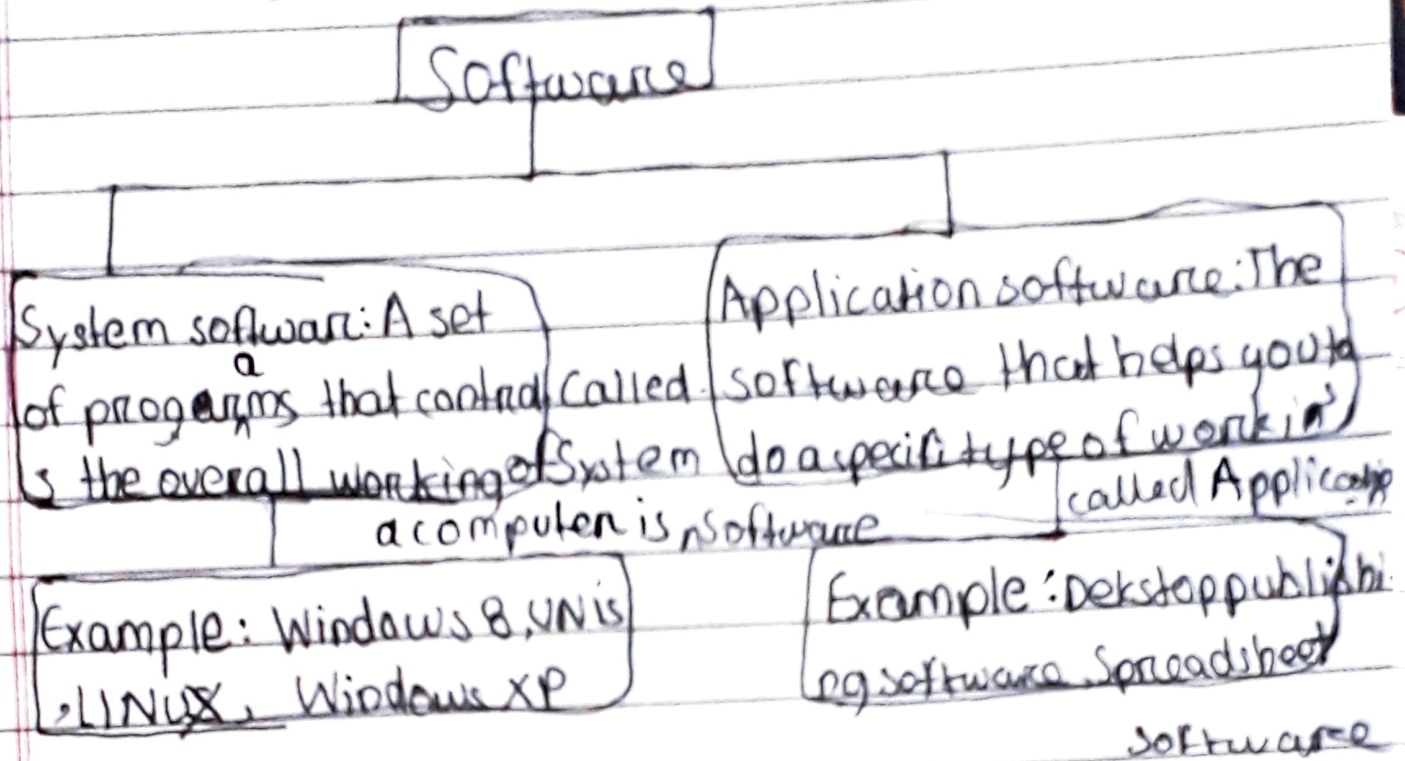 Software
System softwar: A set
of progarams that control Called
s the overall working of System
a computer is software
Application software: The
software that helps you to
do a specifi type of work is
called Applicatio
Example: Windows 8, UNis
, LINUX, Windows XP
Example: Dekstop publishi
ng software Spreadsheet
software